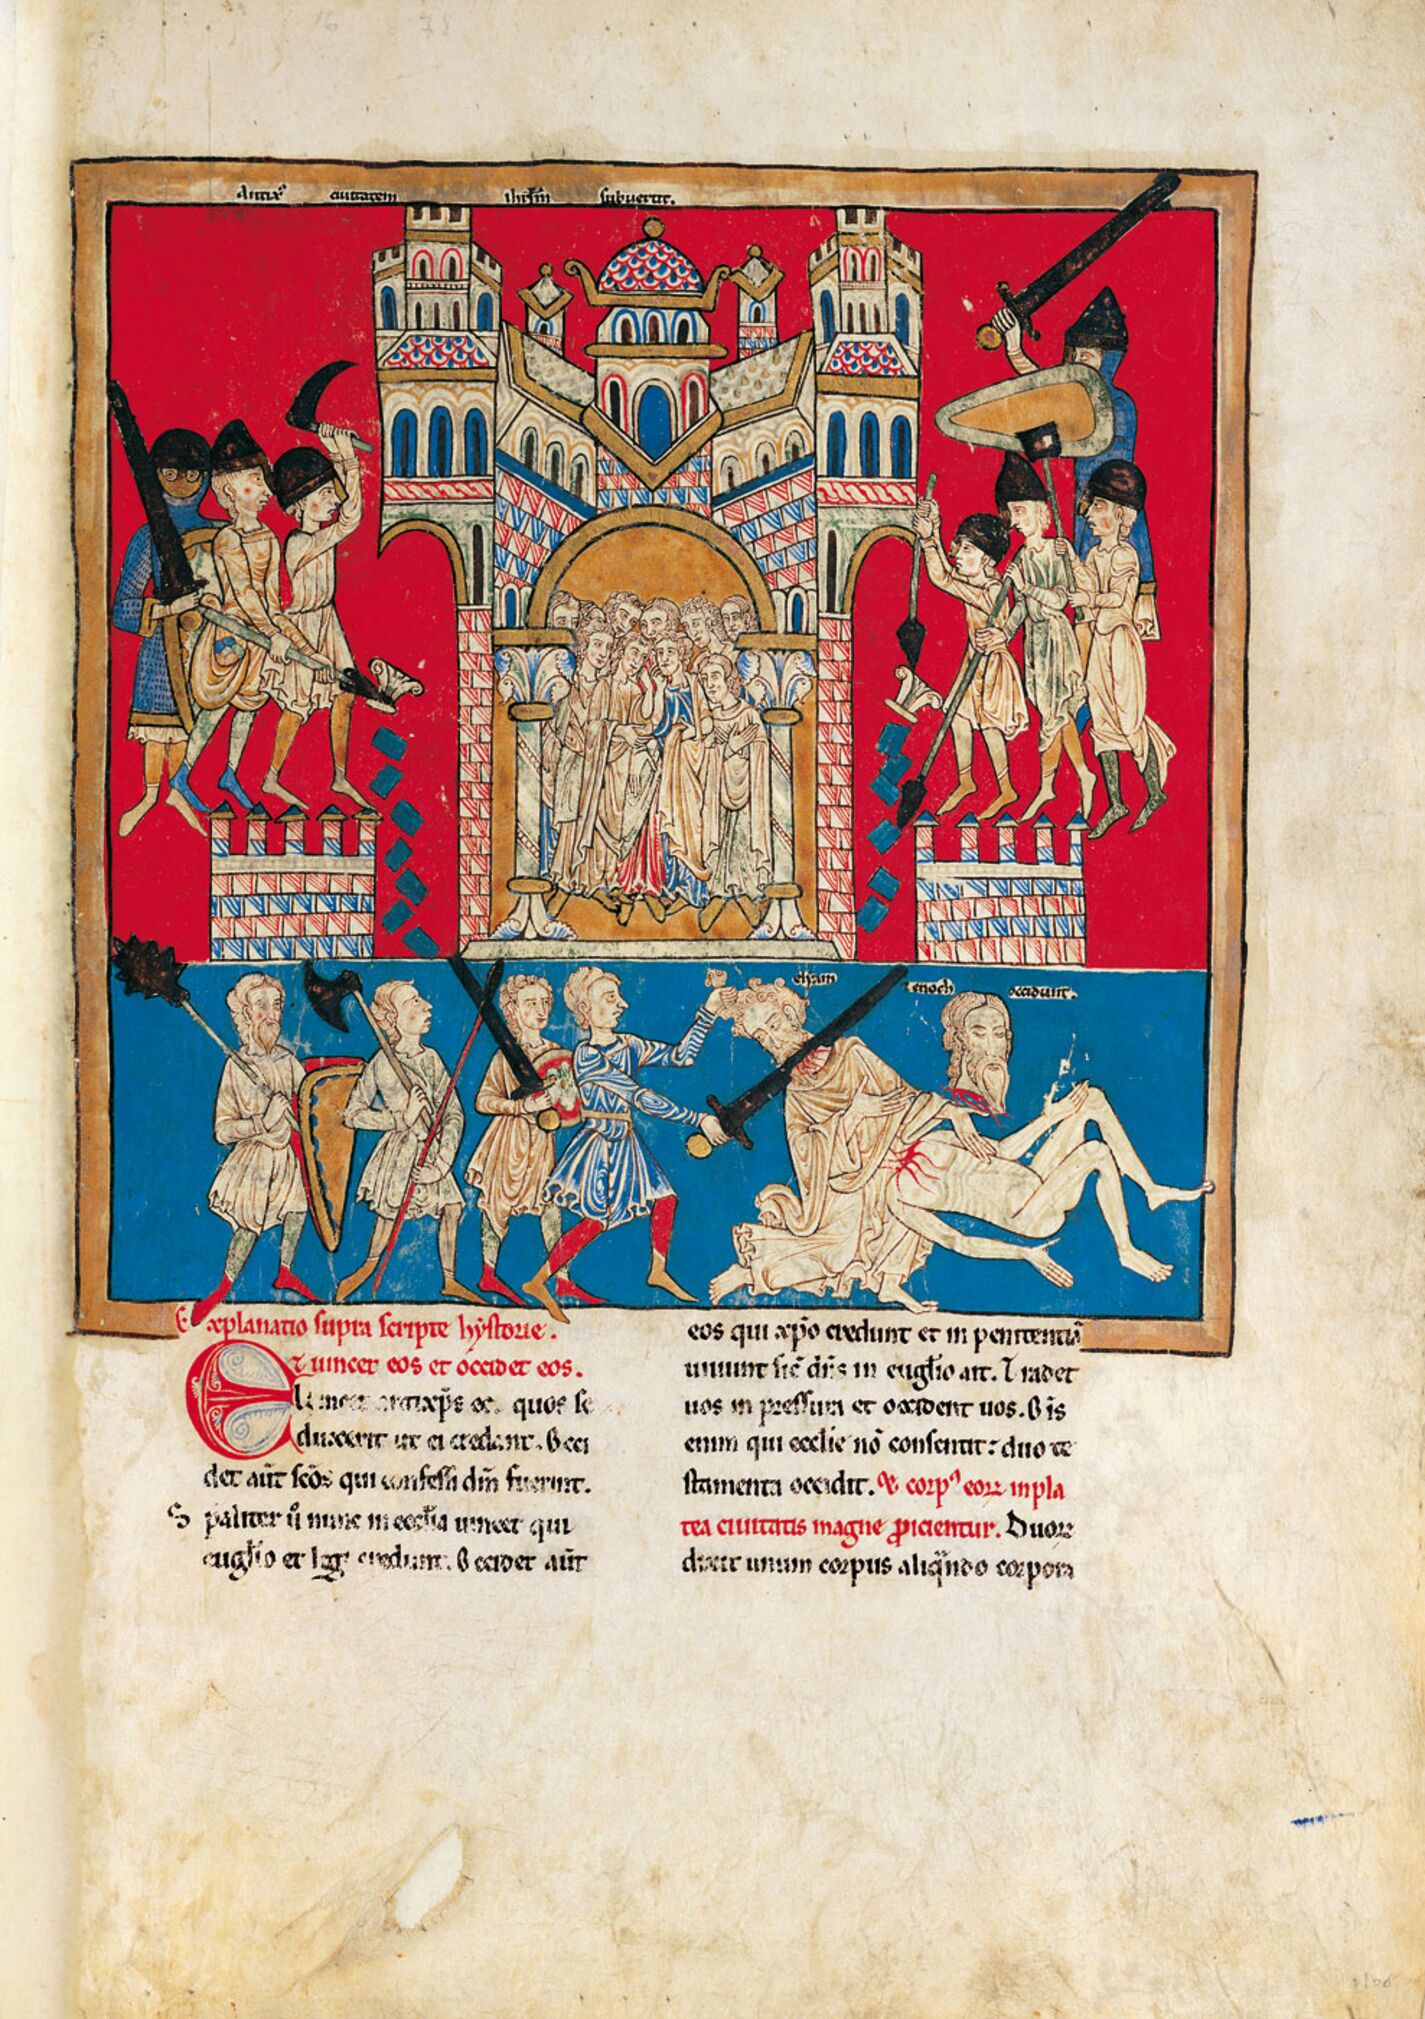 antixp̄s ciuitatem ihrłm subuertit.
elyam
⁊ enoch occidunt.
Explanatio supra scripte hystorie.
Et uincet eos et occidet eos.
antixp̄s quos se
duxerit ut ei credant. Occi
det aūt sc̄os qui confessi dn̄m fuerint.
Spāliter u̅ nunc in eccl̄ia uincet qui
eugl̄io et legi credunt. Occidet aūt
eos qui xp̄o credunt et in penitentia
uiuunt sic̄ dn̄s in eugl̄io ait. Tradet
uos in pressura et occident uos. Om̄s
enim qui ecclie nō consentit: duo te
stamenta occidit. Et corpꝰ eoꝝ in pla
tea ciuitatis magne ꝓicientur. Duoꝝ
dixit unum corpus aliqn̄do corpora